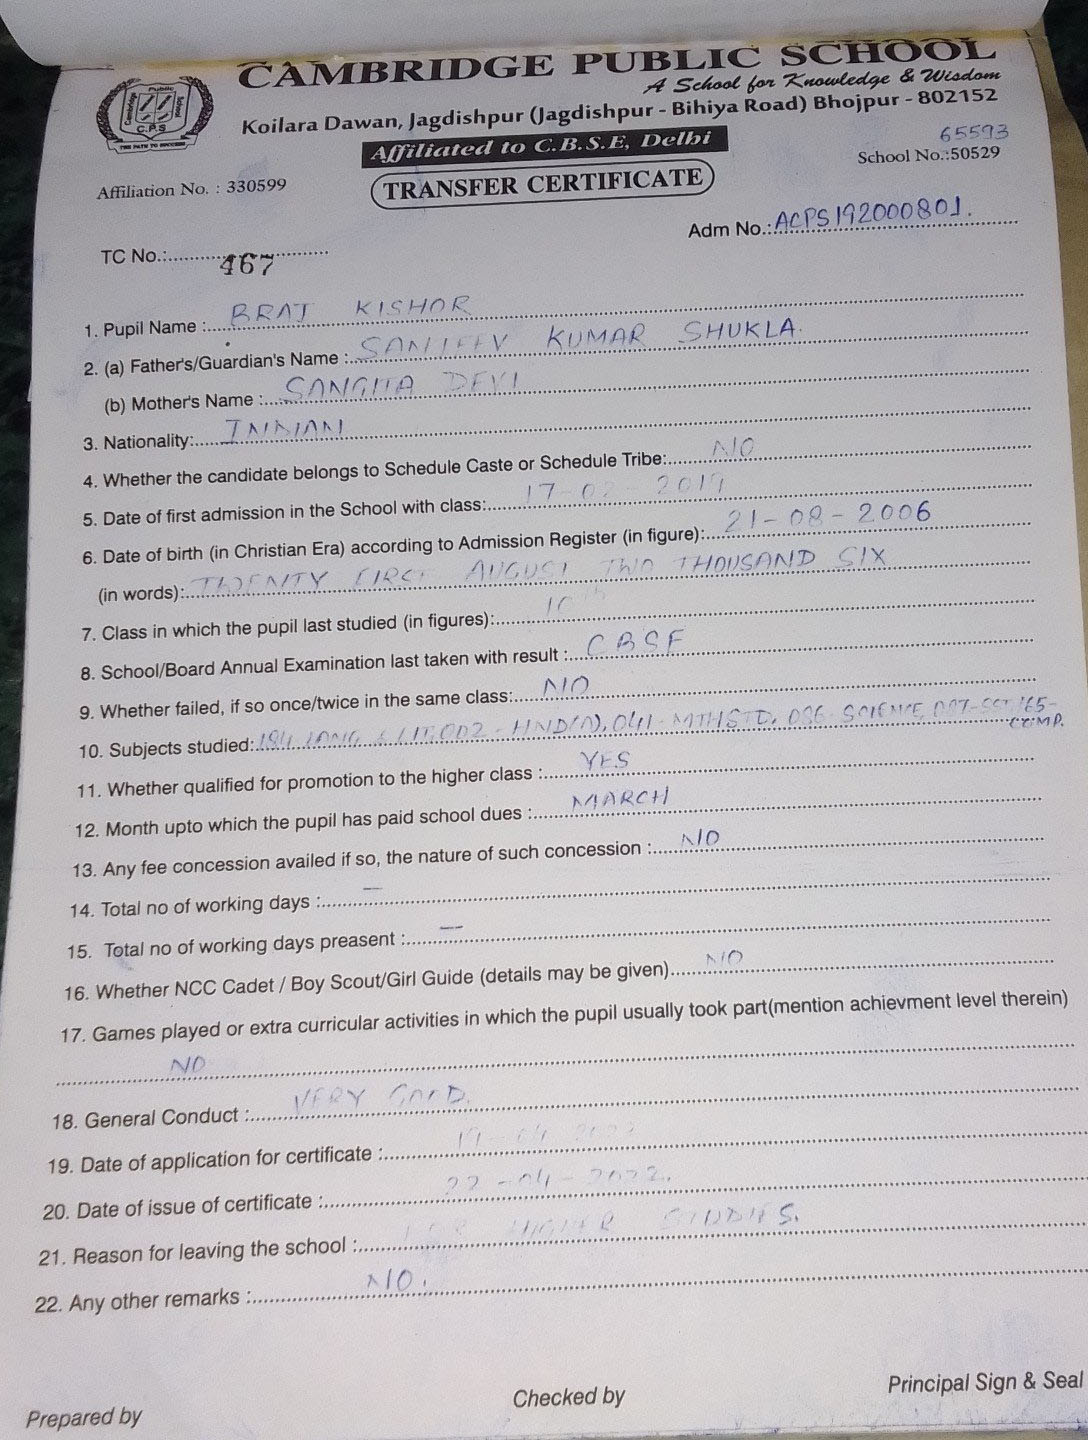 CAMBRIDGE PUBLIC SCHOOL
A School for Knowledge & Wisdom
Koilara Dawan, Jagdishpur (Jagdishpur - Bihiya Road) Bhojpur - 802152
Cambridge Public School
C.P.S
THE PATH TO SUCCESS
Affiliated to C.B.S.E, Delhi
65593
Affiliation No. : 330599
School No.:50529
TRANSFER CERTIFICATE
Adm No.: ACPS192000801.
TC No.: 467
1. Pupil Name : BRAJ KISHOR
2. (a) Father's/Guardian's Name : SANJEEV KUMAR SHUKLA.
(b) Mother's Name : SANGITA DEVI
3. Nationality: INDIAN
4. Whether the candidate belongs to Schedule Caste or Schedule Tribe: NO
5. Date of first admission in the School with class: 17-02-2019
6. Date of birth (in Christian Era) according to Admission Register (in figure): 21-08-2006
(in words): TWENTY FIRST AUGUST TWO THOUSAND SIX
7. Class in which the pupil last studied (in figures): 10th
8. School/Board Annual Examination last taken with result : CBSE
9. Whether failed, if so once/twice in the same class: NO
10. Subjects studied: 184 LANG & LIT, 002 - HND(A), 041 - MTHSTD, 086 - SCIENCE, 087-SST, 165-
COMP.
11. Whether qualified for promotion to the higher class : YES
12. Month upto which the pupil has paid school dues : MARCH
13. Any fee concession availed if so, the nature of such concession : NO
14. Total no of working days : —
15. Total no of working days preasent : —
16. Whether NCC Cadet / Boy Scout/Girl Guide (details may be given) NO
17. Games played or extra curricular activities in which the pupil usually took part(mention achievment level therein)
NO
18. General Conduct : VERY GOOD.
19. Date of application for certificate :
20. Date of issue of certificate : 22-04-2022.
21. Reason for leaving the school : FOR HIGHER STUDIES.
22. Any other remarks : NO.
Prepared by
Checked by
Principal Sign & Seal